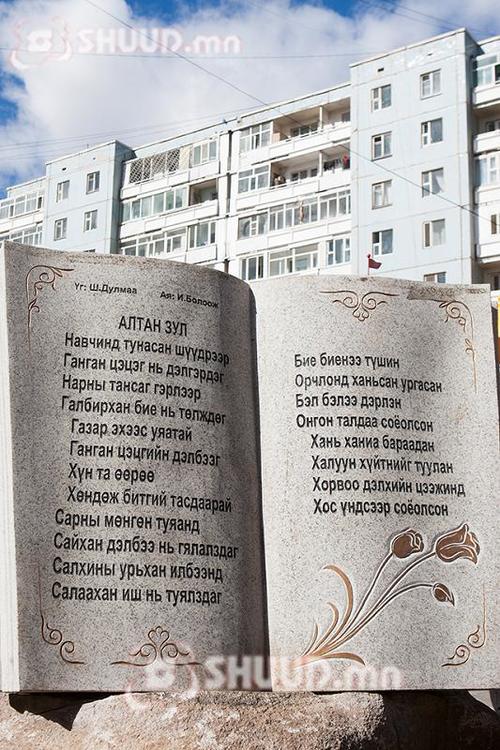 SHUUD.mn
Үг: Ш.Дулмаа Ая: И.Болоож
АЛТАН ЗУЛ
Навчинд тунасан шүүдрээр
Ганган цэцэг нь дэлгэрдэг
Нарны тансаг гэрлээр
Галбирхан бие нь төлждөг
Газар эхээс уяатай
Ганган цэцгийн дэлбээг
Хүн та өөрөө
Хөндөж битгий тасдаарай
Сарны мөнгөн туяанд
Сайхан дэлбээ нь гялалздаг
Салхины урьхан илбээнд
Салаахан иш нь туялздаг
Бие биенээ түшин
Орчлонд ханьсан ургасан
Бэл бэлээ дэрлэн
Онгон талдаа соёолсон
Хань ханиа бараадан
Халуун хүйтнийг туулан
Хорвоо дэлхийн цээжинд
Хос үндсээр соёолсон
SHUUD.mn